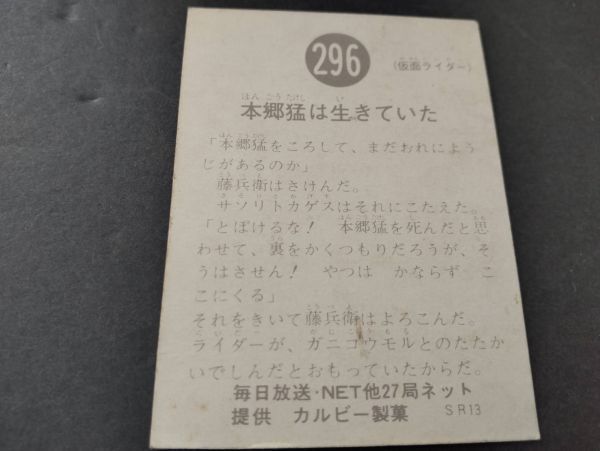 296
(仮面ライダー)
本郷猛は生きていた
「本郷猛をころして、まだおれによう
じがあるのか」
藤兵衛はさけんだ。
サソリトカゲスはそれにこたえた。
「とぼけるな！ 本郷猛を死んだと思
わせて、裏をかくつもりだろうが、そ
うはさせん！ やつは かならず こ
こにくる」
それをきいて藤兵衛はよろこんだ。
ライダーが、ガニコウモルとのたたか
いでしんだとおもっていたからだ。
毎日放送・NET他27局ネット
提供 カルビー製菓 SR13